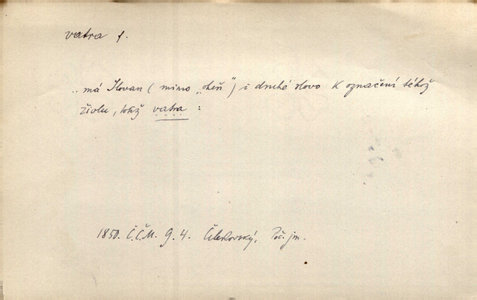 vatra f.
..má Slovan (mimo „oheň") i druhé slovo k označení téhož
živlu, totiž vatra :
1850. Č.Č.M. 9.4. Čelakovský, Poč. jm.